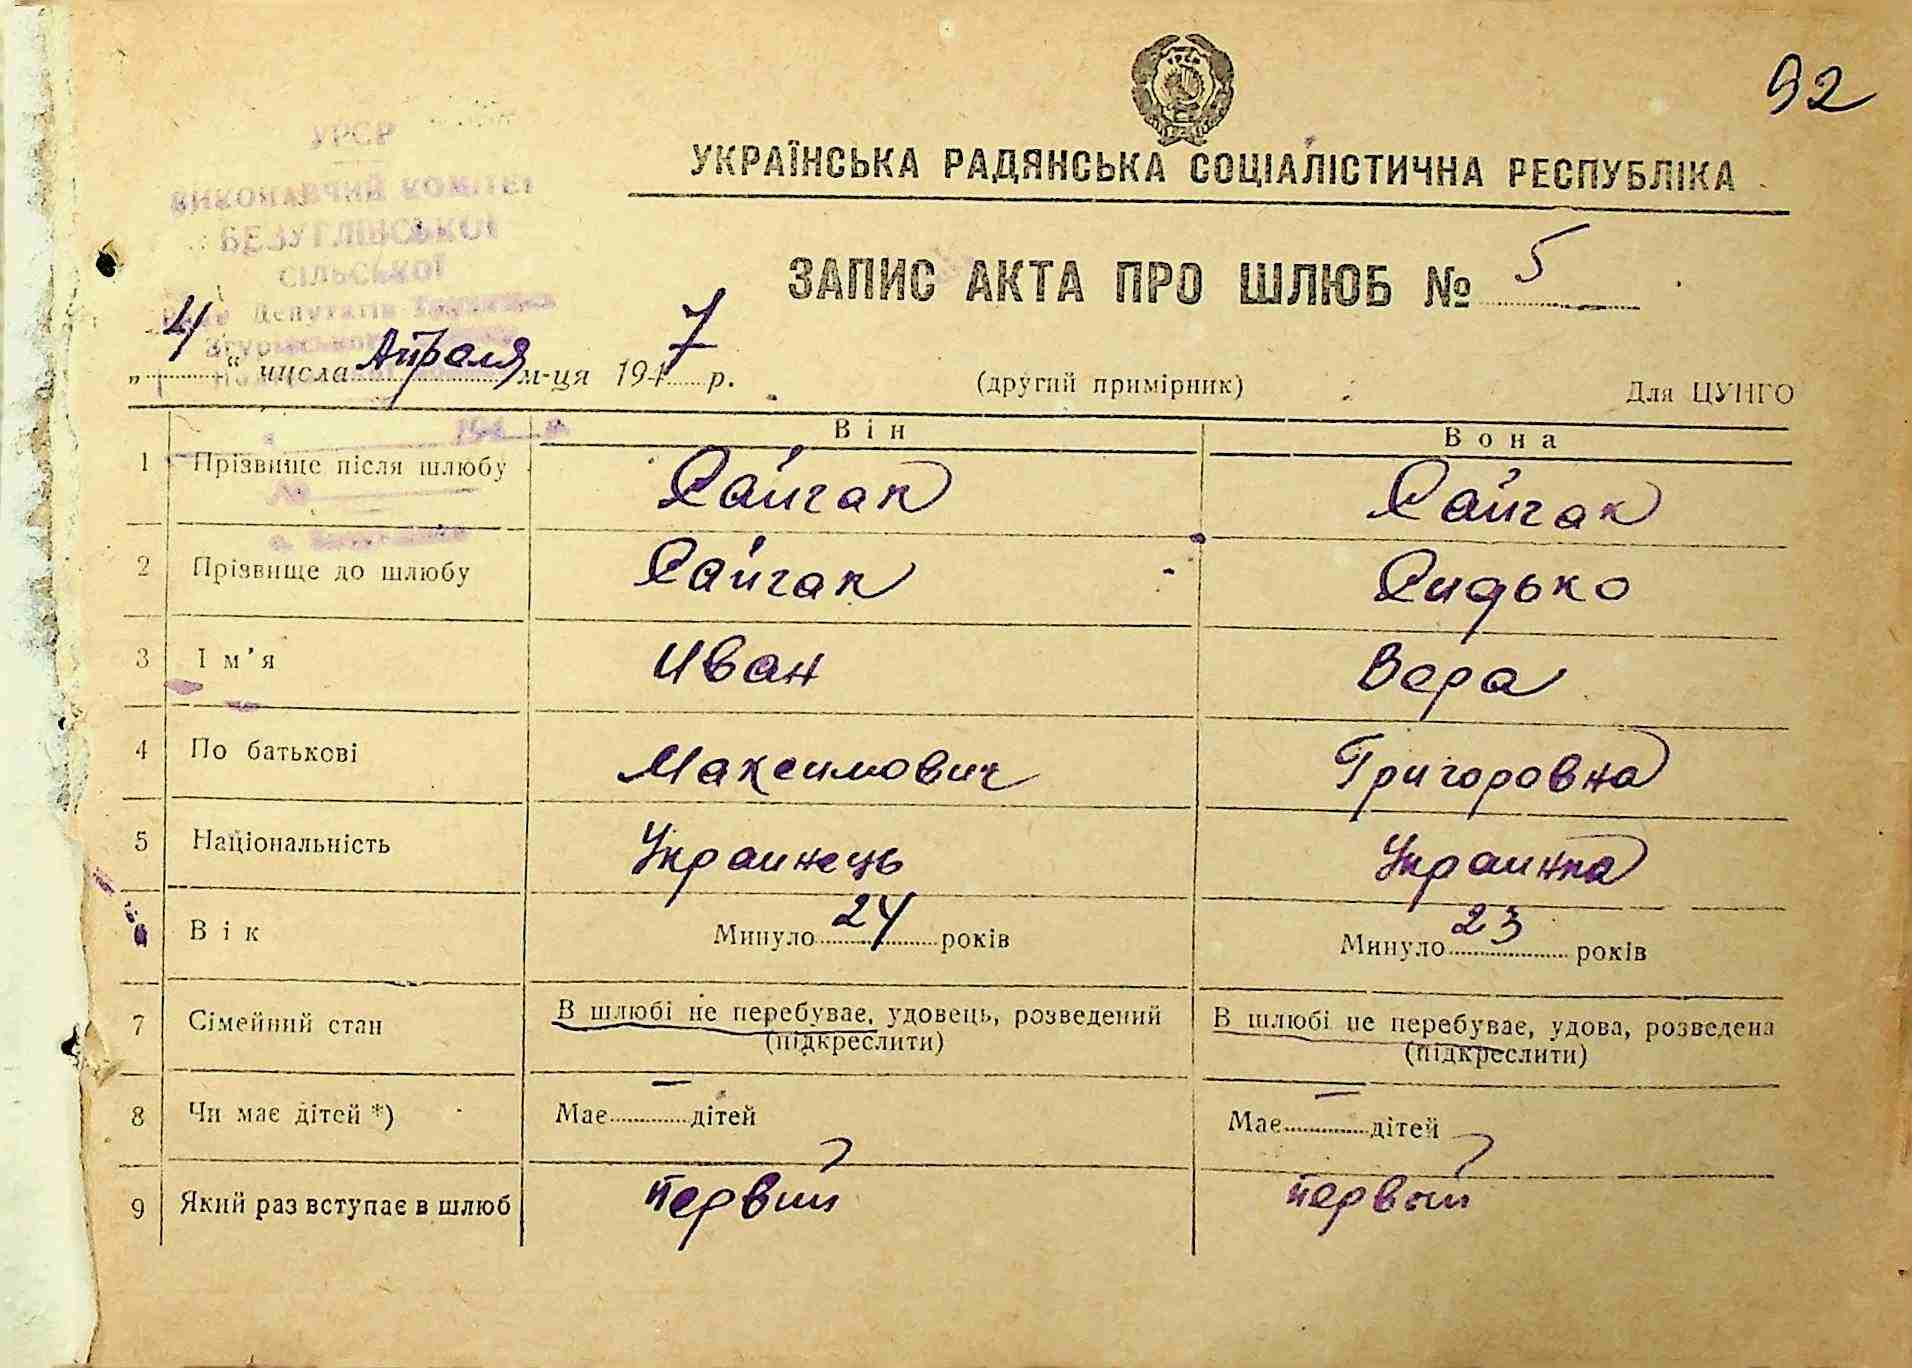 92
УРСР
ВИКОНАВЧИЙ КОМІТЕТ
БЕЗУГЛІВСЬКОЇ
СІЛЬСЬКОЇ
Депутатів Трудящих
УКРАЇНСЬКА РАДЯНСЬКА СОЦІАЛІСТИЧНА РЕСПУБЛІКА
ЗАПИС АКТА ПРО ШЛЮБ № 5
„ 4 “ числа Апреля м-ця 1947 р. (другий примірник) Для ЦУНГО
Він Вона
1 Прізвище після шлюбу Сайгак Сайгак
2 Прізвище до шлюбу Сайгак Сидько
3 Ім’я Иван Вера
4 По батькові Максимович Григоровна
5 Національність Украинець Украинка
Вік Минуло 24 років Минуло 23 років
7 Сімейний стан В шлюбі не перебуває, удовець, розведений В шлюбі не перебуває, удова, розведена
(підкреслити) (підкреслити)
8 Чи має дітей *) Має — дітей Має — дітей
9 Який раз вступає в шлюб первий первый